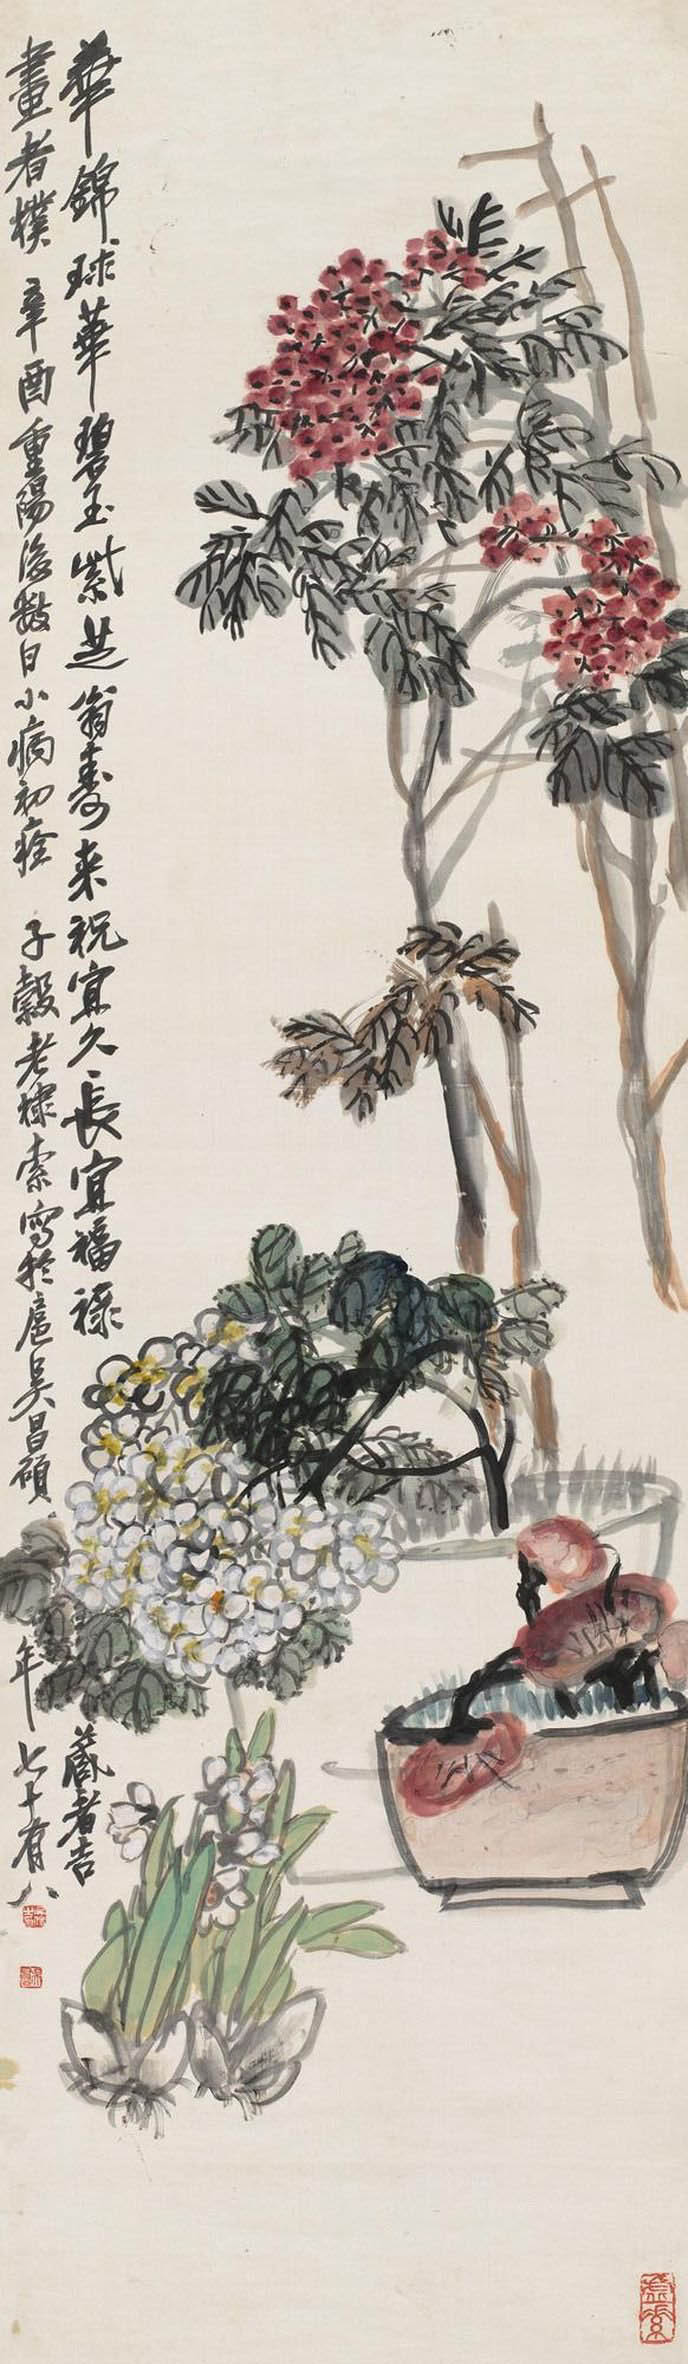 華錦球華碧玉紫芝翁壽來祝宜久長宜福祿藏者吉
畫者樸辛酉重陽後數日小病初痊子穀老棣索寫於扈吳昌碩年七十有八